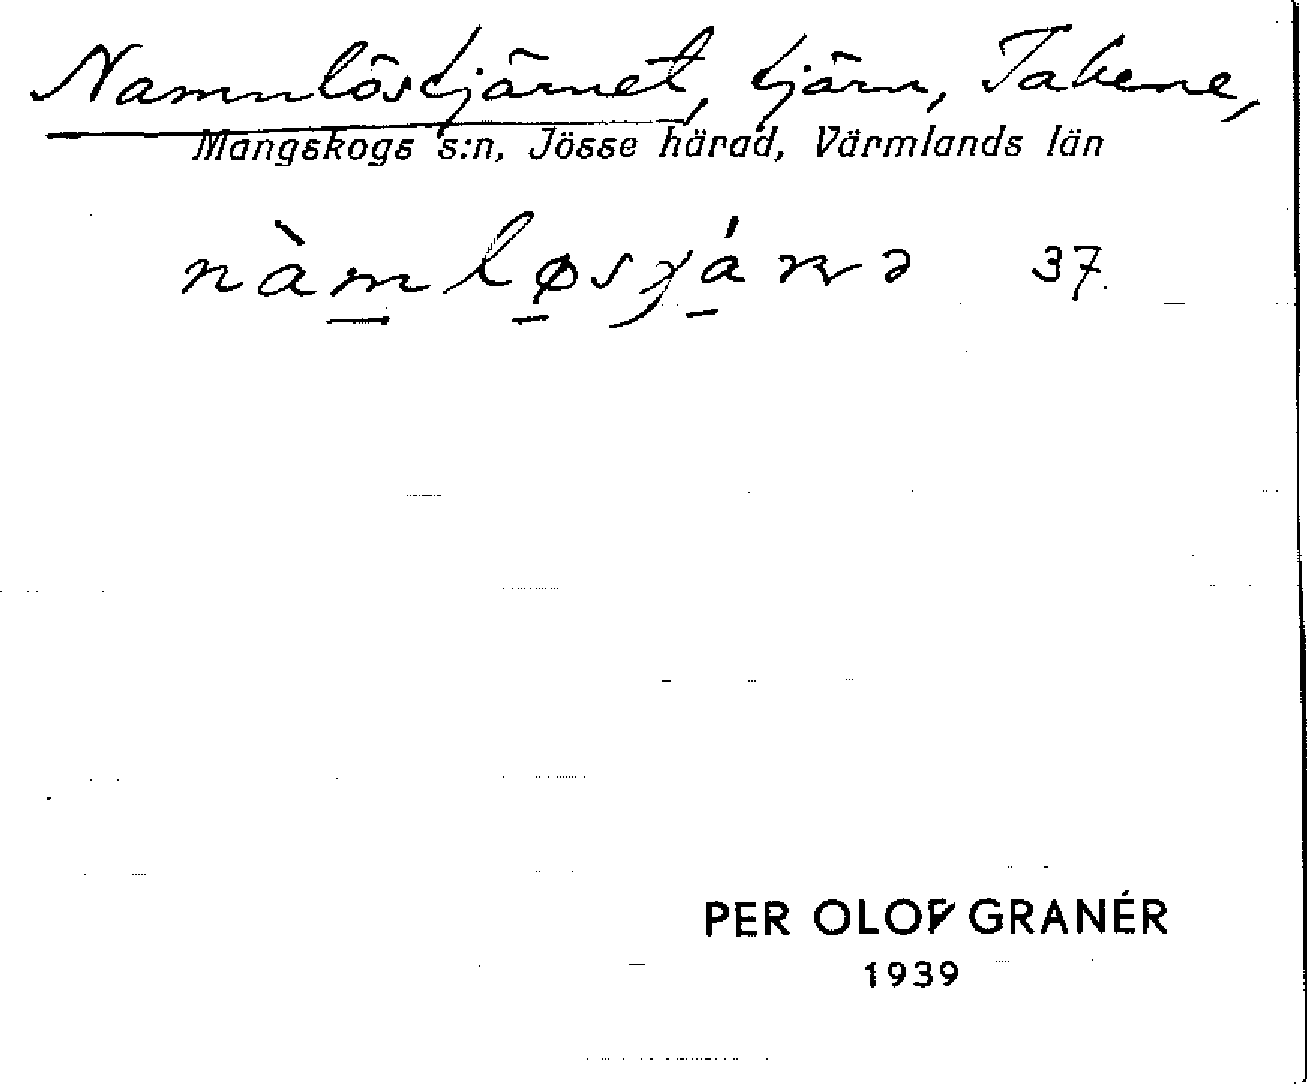 Namnlöstjärnet, tjärn, Takene,
Mangskogs s:n, Jösse härad, Värmlands län
37.
PER OLOF GRANÉR
1939